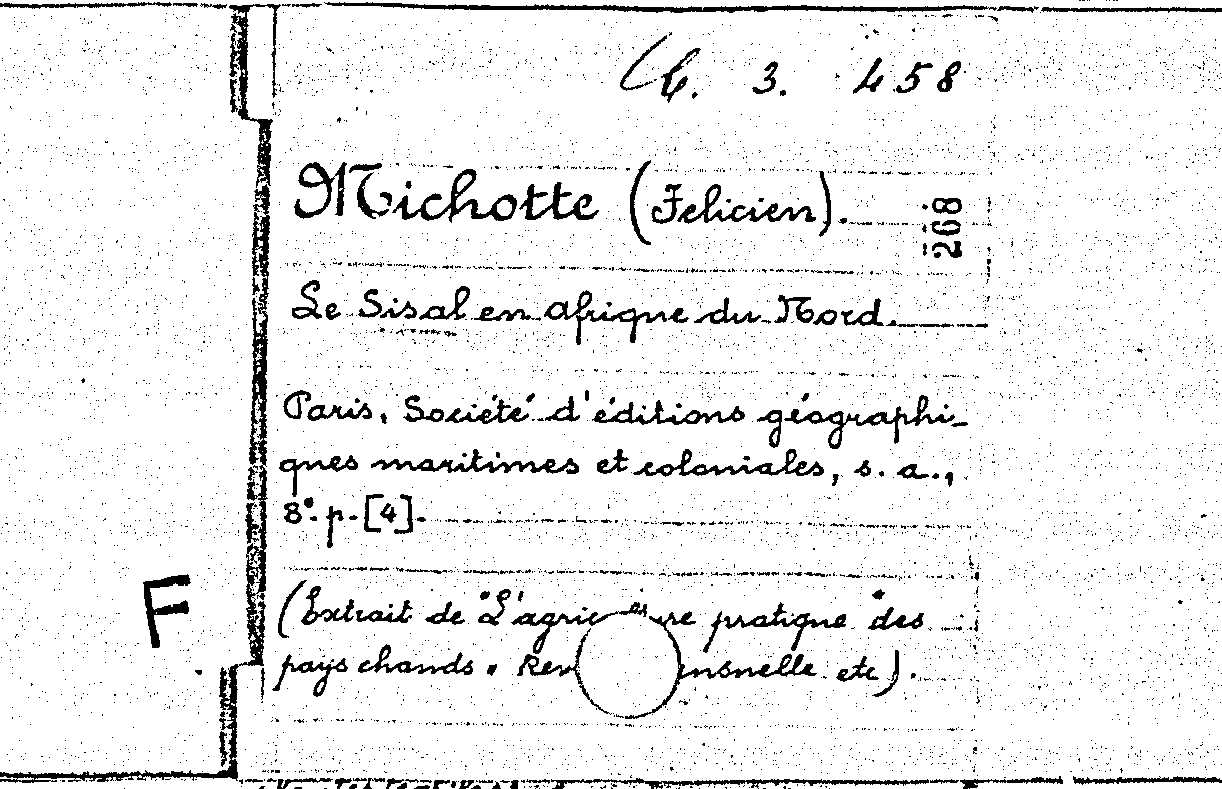 C. 3. 458
Michotte (Felicien).
268
Le Sisal en Afrique du Nord.
Paris, Société d'éditions géographi-
ques maritimes et coloniales, s. a.,
8°. p. [4].
F
(Extrait de "L'agric re pratique des
pays chauds" Rev nsnelle etc).